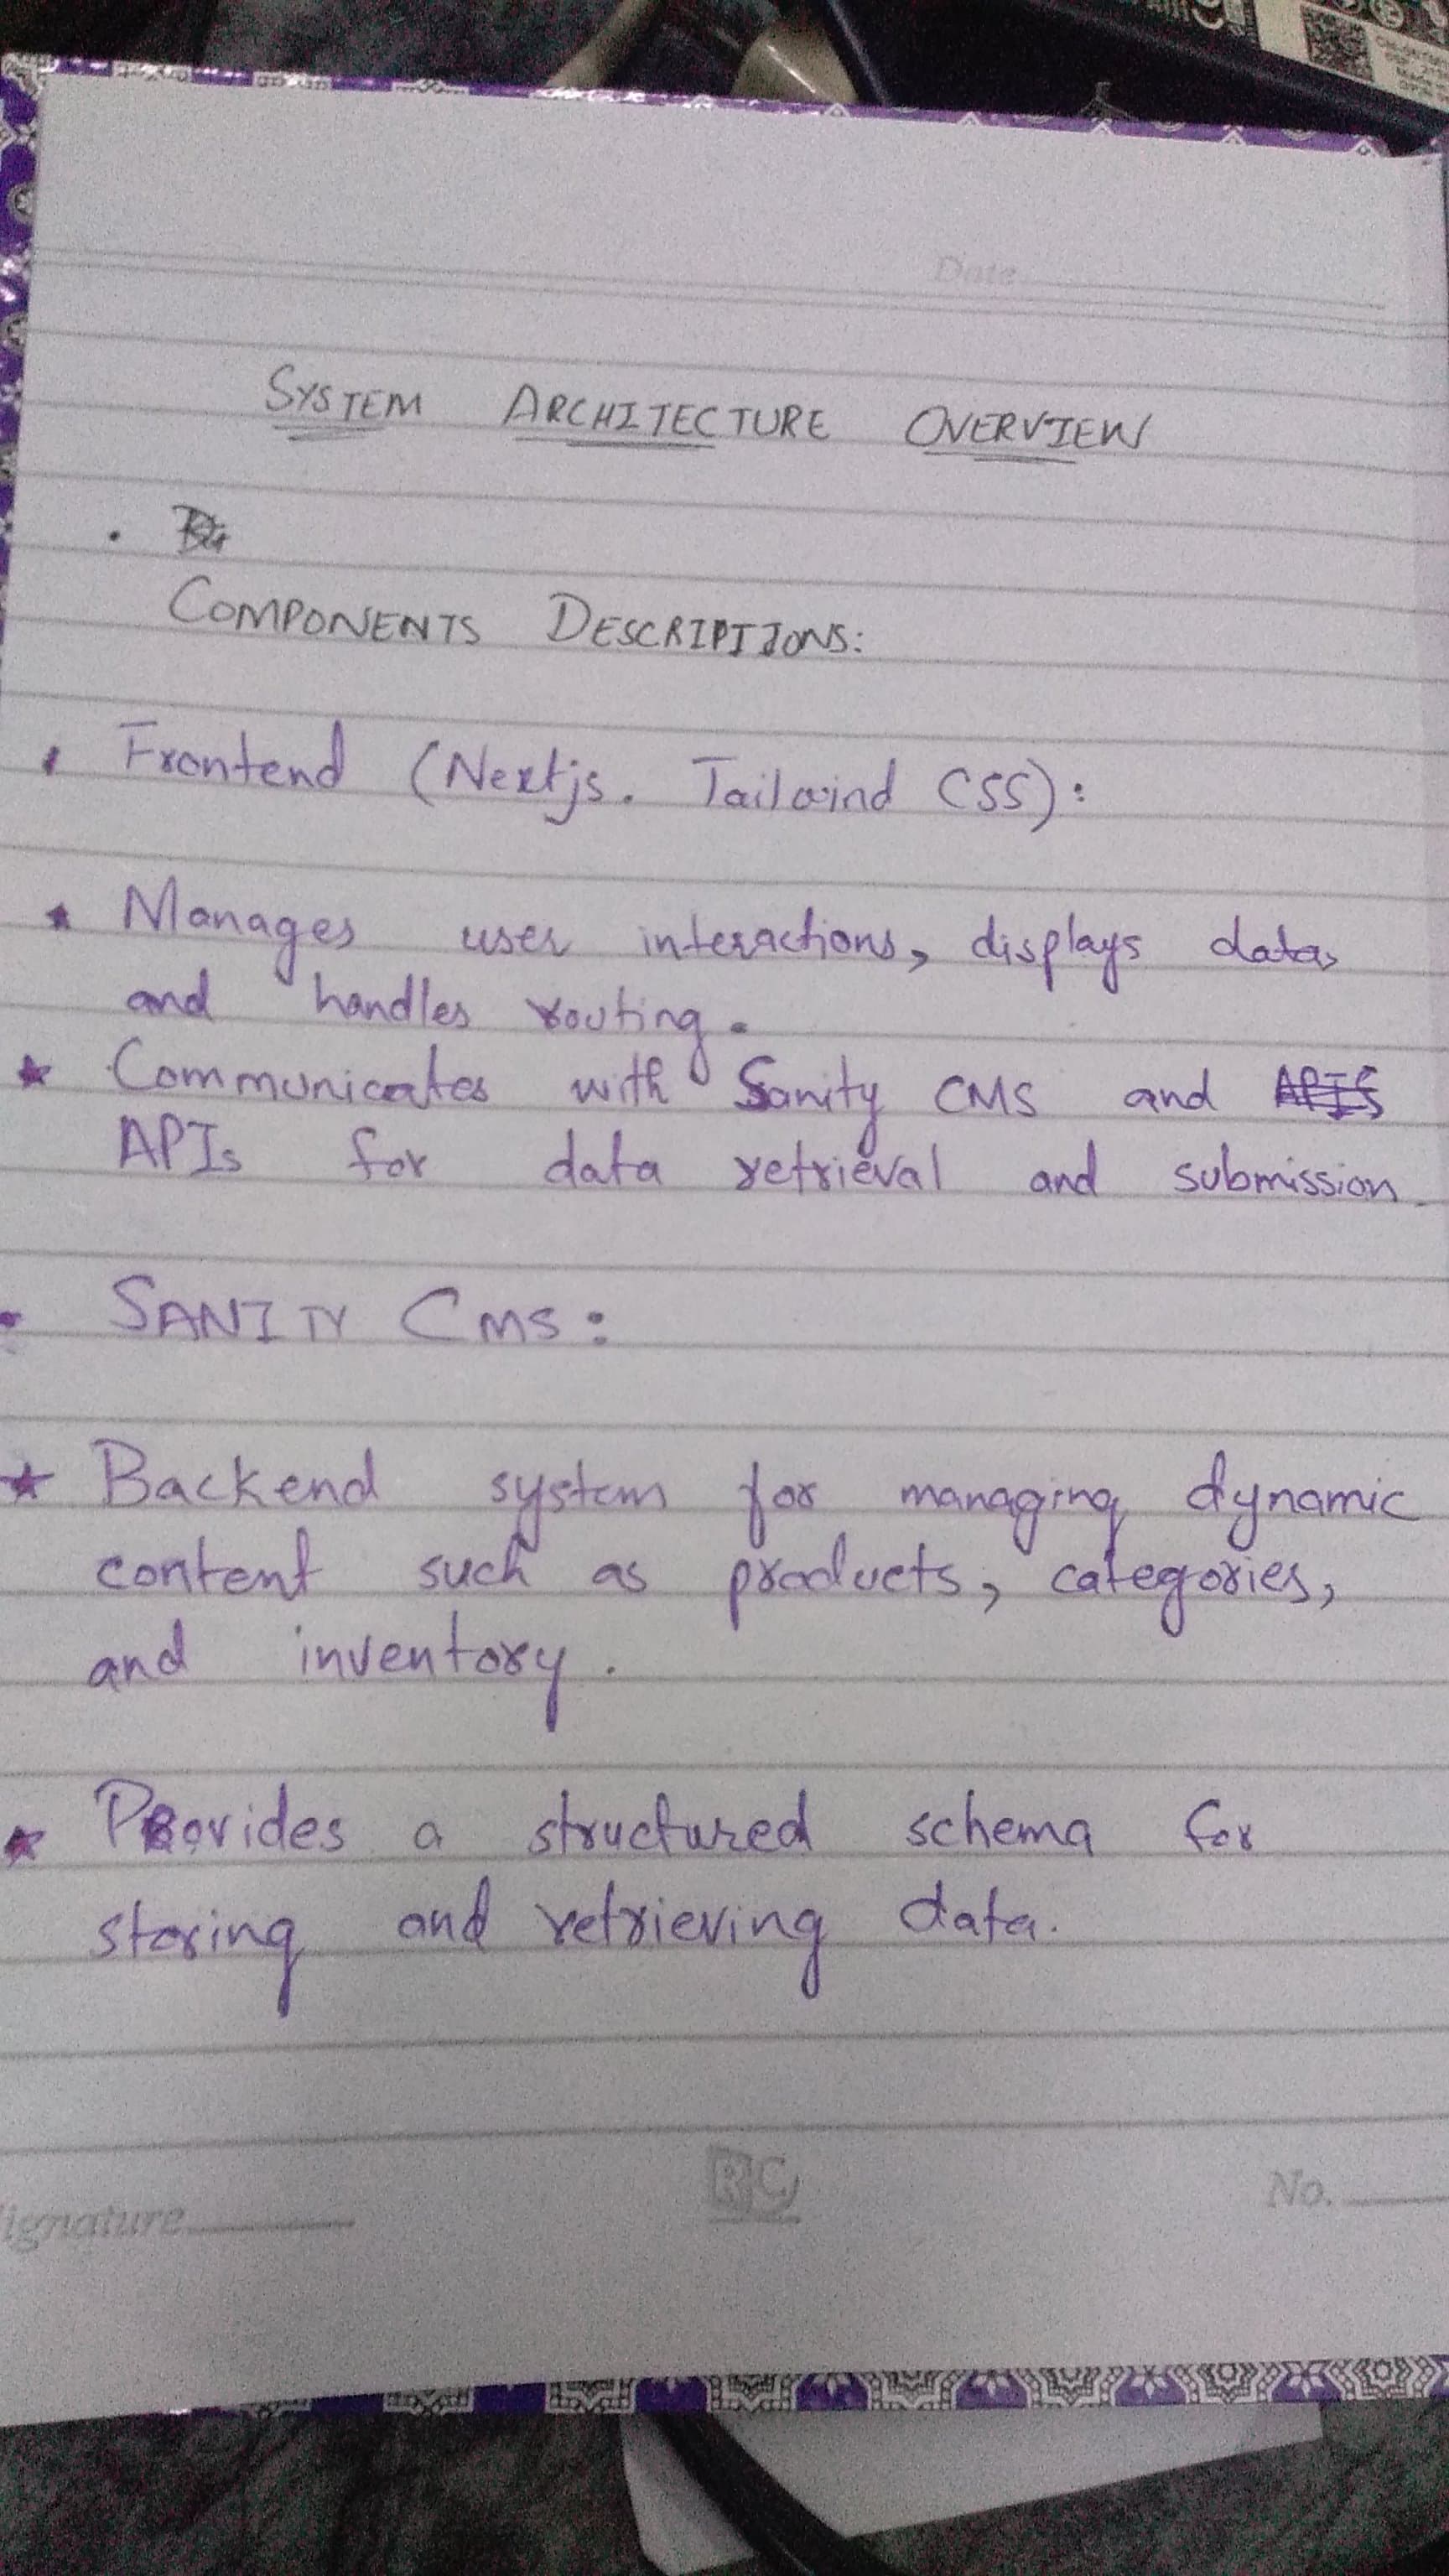 Date
SYSTEM ARCHITECTURE OVERVIEW
COMPONENTS DESCRIPTIONS:
Frontend (Nextjs. Tailwind CSS):
★ Manages user interactions, displays data,
and handles routing.
★ Communicates with Sanity CMS and APIS
APIs for data retrieval and submission.
• SANITY CMS:
★ Backend system for managing dynamic
content such as products, categories,
and inventory.
★ Provides a structured schema for
storing and retrieving data.
RC
ignature
No.